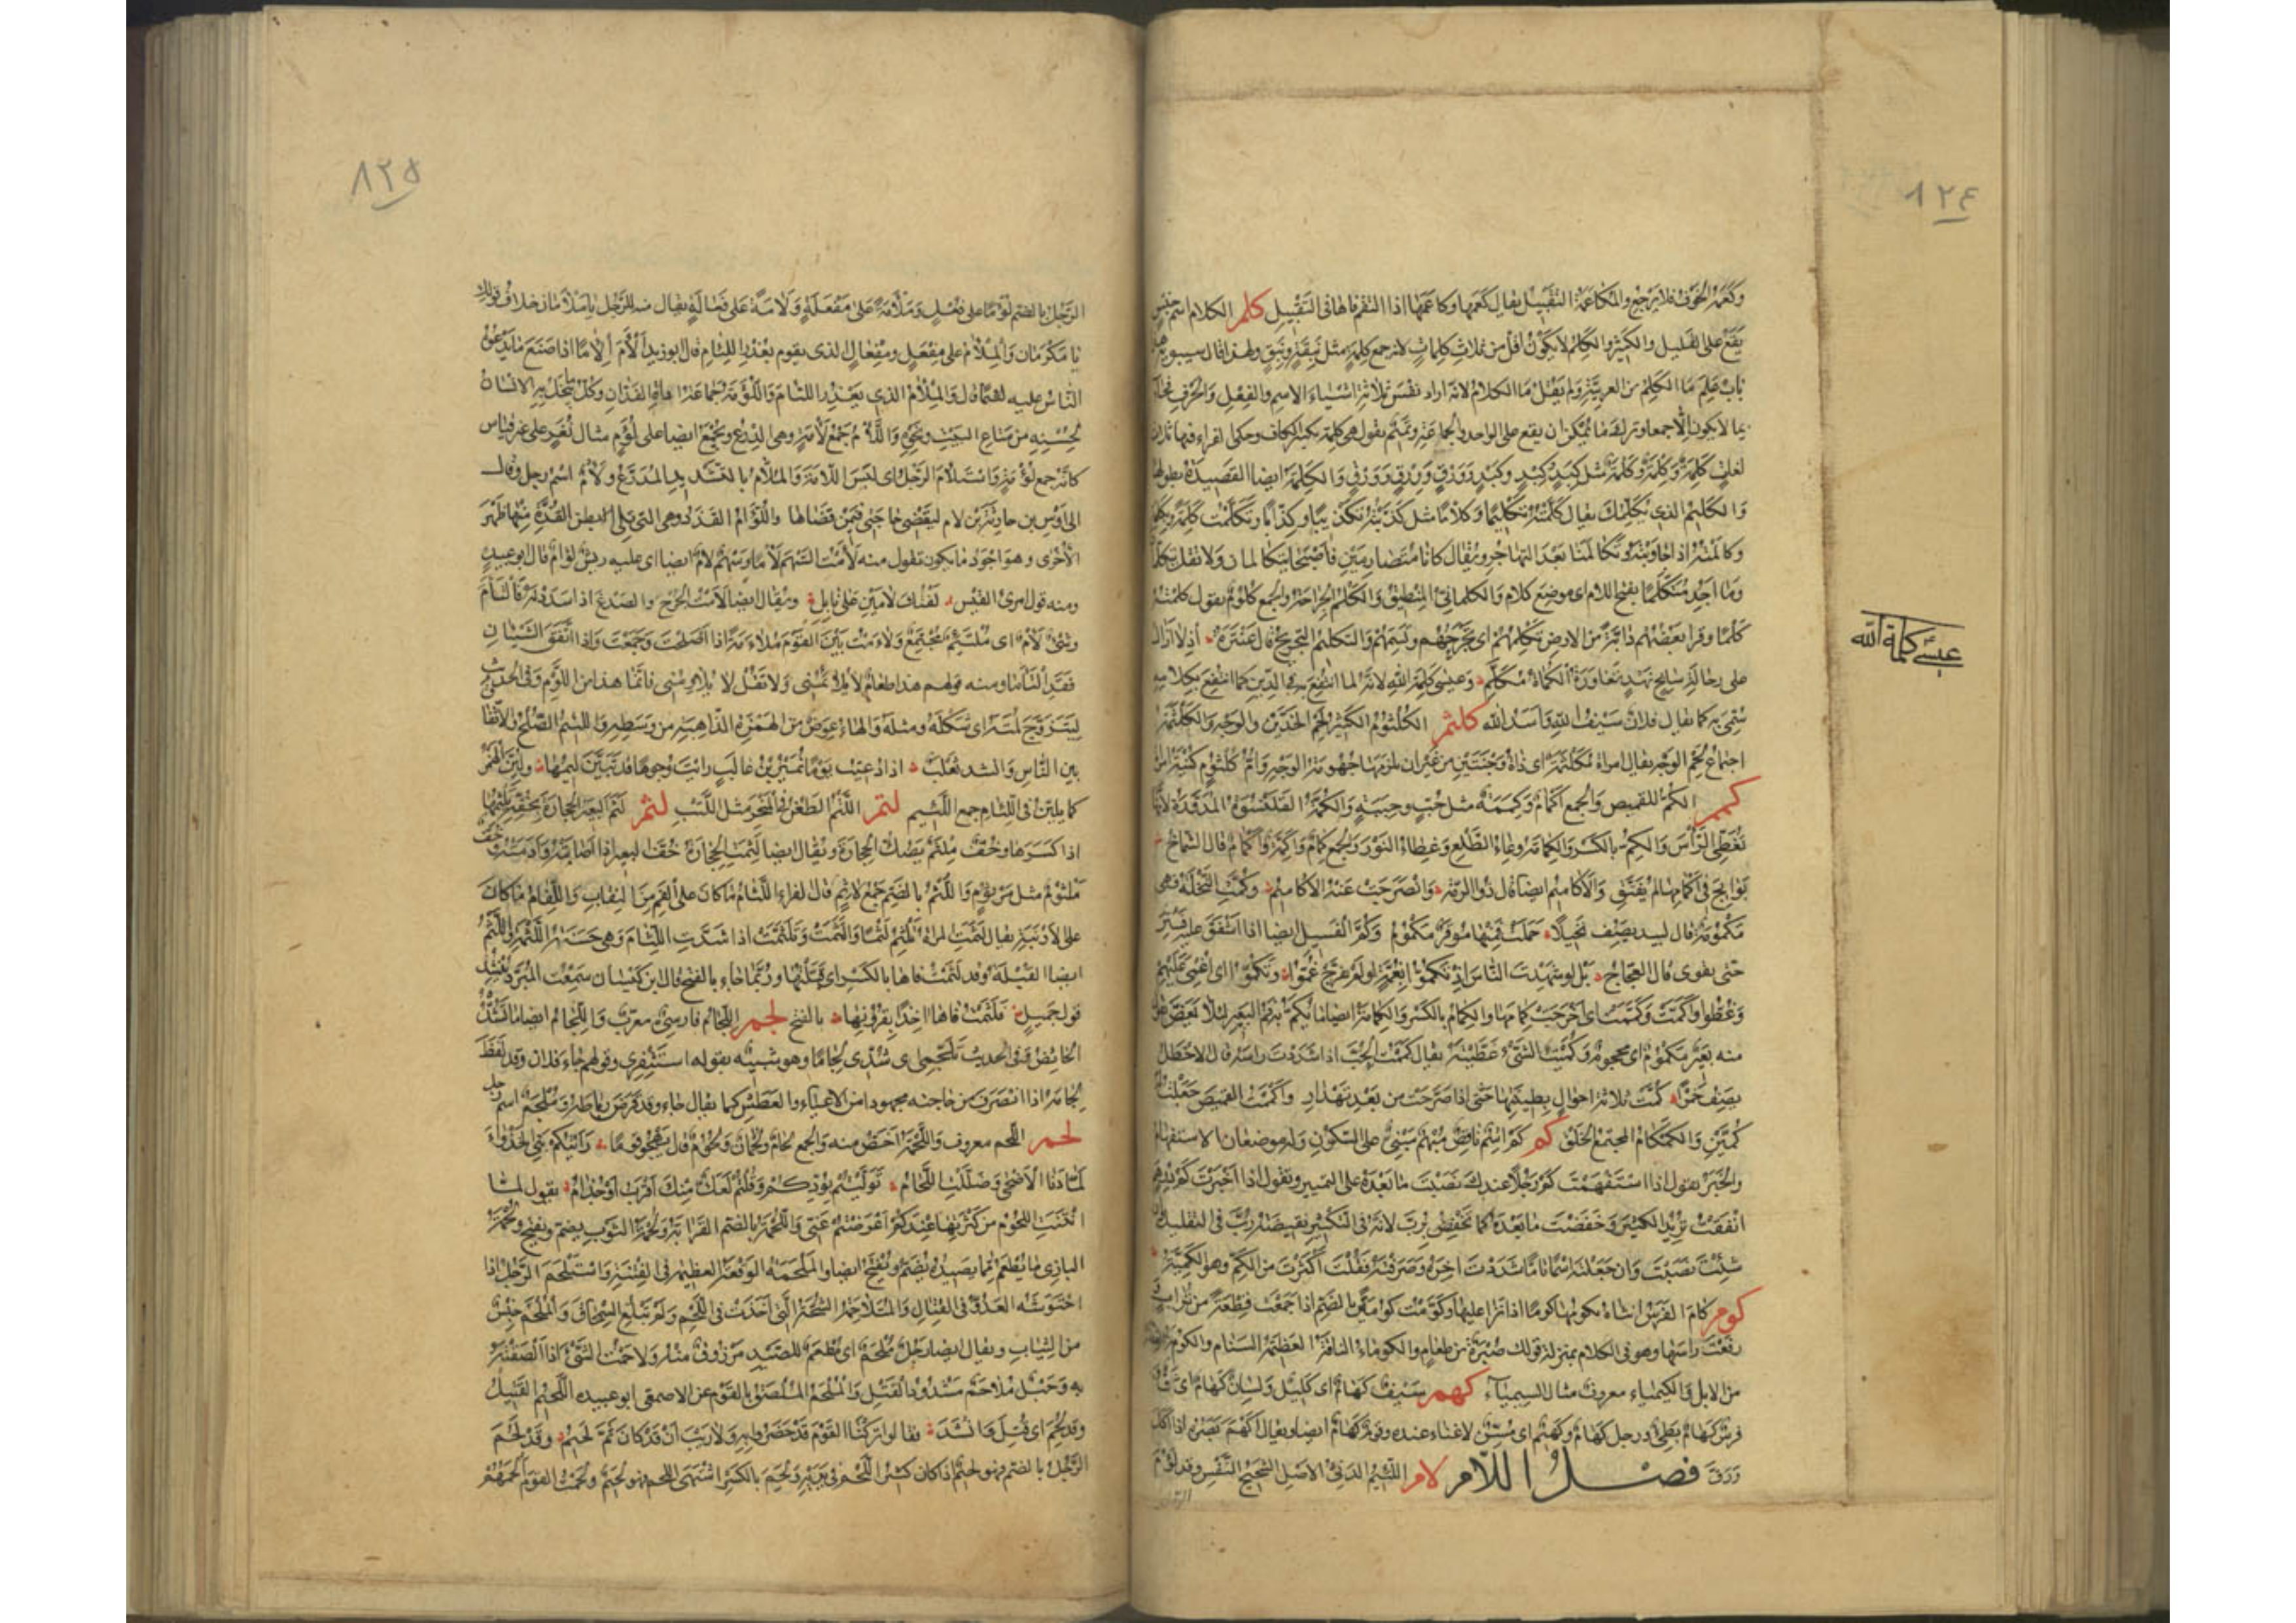 ٨٢٤
وكعمه الخوف فلا يرجع والمكاعمة التقبيل يقال كعمها وكاعمها اذا التقم فاها فى التقبيل كلم الكلام اسم جنس
يقع على القليل والكثير والكلم لا يكون اقل من ثلاث كلمات لانه جمع كلمة مثل نبقة ونبق ولهذا قال سيبويه هذا
باب علم ما الكلم من العربية ولم يقل ما الكلام لانه اراد نفس ثلاثة اشياء الاسم والفعل والحرف فجاء
بما لا يكون الا جمعا وترك ما يمكن ان يقع على الواحد والجماعة وتميم يقول هى كلمة بكسر الكاف وحكى الفراء فيها ثلاث
لغات كلمة وكلمة وكلمة مثل كبد وكبد وكبد وورق وورق وورق والكلمة ايضا القصيدة بطولها
والكليم الذى يكلمك يقال كلمته تكليما وكلاما مثل كذبته تكذيبا وكذابا وتكلمت كلمة وبكلمة
وكالمته اذا جاوبته وتكالمنا بعد التهاجر ويقال كانا متصارمين فاصبحا يتكالمان ولا تقل يتكلمان
وما اجد متكلما بفتح اللام اى موضع كلام والكلمانى المنطيق والكلم الجراحة والجمع كلوم تقول كلمته
كلما وقرا بعضهم دابة من الارض تكلمهم اى تجرحهم وتسمهم والتكليم التجريح قال عنترة اذ لا ازال
على رحالة سابح نهد تعاوره الكماة مكلم وعيسى كلمة الله لانه لما انتفع به فى الدين كما انتفع بكلامه
سمى به كما يقال فلان سيف الله واسد الله كلثم الكلثوم الكثير لحم الخدين والوجه والكلثمة
اجتماع لحم الوجه يقال امراة مكلثمة اى ذات وجنتين من غير ان يلزمها جهومة الوجه وام كلثوم كنية امراة
كمم الكم للقميص والجمع اكمام وكممة مثل حب وحببة والكمة القلنسوة المدورة لانها
تغطى الراس والكم بالكسر والكمامة وعاء الطلع وغطاء النور والجمع كمام واكمة واكمام قال الشماخ
بوائج فى اكمامها لم تفتق والاكاميم ايضا قال ذو الرمة وانصرحت عنه الاكاميم وكمت النخلة فهى
مكمومة قال لبيد يصف نخيلا حملت فمنها موقر مكموم وكم الفسيل ايضا اذا اشفق عليه فستر
حتى يقوى قال العجاج بل لو شهدت الناس اذ تكموا بغمة لو لم تفرج غموا وتكموا اى اغمى عليهم
وغطوا واكمت وكممت اى اخرجت كمامها والكمام بالكسر والكمامة ايضا ما يكم به فم البعير لئلا يعض تقول
منه بعير مكموم اى محجوم وكممت الشىء غطيته يقال كممت الحب اذا شددت راسه قال الاخطل
يصف خمرا كمت ثلاثة احوال بطينتها حتى اذا صرحت من بعد تهدار واكممت القميص جعلت له
كمين والكمكام المجتمع الخلق كم كم اسم ناقص مبهم مبنى على السكون وله موضعان الاستفهام
والخبر تقول اذا استفهمت كم رجلا عندك نصبت ما بعده على التمييز وتقول اذا اخبرت كم درهم
انفقت تريد التكثير وخفضت ما بعده كما تخفض برب لانه فى التكثير نقيض رب فى التقليل وان
شئت نصبت وان جعلته اسما تاما شددت اخره وصرفته فقلت اكثرت من الكم وهو الكمية
كوم كام الفرس انثاه يكومها كوما اذا نزا عليها وكومت كومة بالضم اذا جمعت قطعة من تراب و
رفعت راسها وهو فى الكلام بمنزلة قولك صبرة من طعام والكوماء الناقة العظيمة السنام والكوم القطعة
من الابل والكيمياء معروف مثال السيمياء كهم سيف كهام اى كليل ولسان كهام اى
فرس كهام بطىء ورجل كهام وكهيم اى مسن لا غناء عنده وقوم كهام ايضا ويقال اكهم بصره اذا كل
ورق فصل اللام لام اللئيم الدنى الاصل الشحيح النفس وقد لؤم
عيسى كلمة الله
٨٢٥
الرجل بالضم لؤما على فعل وملأمة على مفعلة ولآمة على فعالة يقال منه للرجل يا ملأمان خلاف قولك
يا مكرمان والملأم على مفعل ومفعال الذى يقوم بعذر اللئام قال ابو زيد ألأم إلآما اذا صنع ما يدعوه
الناس عليه لئيما قال والملآم الذى يعذر اللئام واللؤمة جماعة اداة الفدان وكل ما يبخل به الانسان
لحسنه من متاع البيت ونحوه واللأم جمع لأمة وهى الدرع ويجمع ايضا على لؤم مثال نغر على غير قياس
كانه جمع لؤمة واستلأم الرجل اى لبس اللأمة والملأم بالتشديد المدرع ولأم اسم رجل وقال
الى اوس بن حارثة بن لام ليقضى حاجتى فيمن قضاها واللؤام القذذ وهى التى يلى بطن القذة منها ظهر
الاخرى وهو اجود ما يكون تقول منه لأمت السهم لأما وسهم لأم ايضا اى عليه ريش لؤام قال ابو عبيد
ومنه قول امرئ القيس لفتك لأمين على نابل ويقال ايضا لأمت الجرح والصدع اذا سددته فالتأم
وشىء لأم اى ملتئم مجتمع ولاءمت بين القوم ملاءمة اذا اصلحت وجمعت واذا اتفق الشيئان
فقد التأما ومنه قولهم هذا طعام لا يلائمنى ولا تقل لا يلاومنى فانما هذا من اللوم وفى الحديث
ليتزوج لمته اى شكله ومثله والهاء عوض من الهمزة الذاهبة من وسطه واللئم الصلح والاتفاق
بين الناس وانشد ثعلب اذا دعيت يوما نمير بن غالب رايت وجوها قد تبين ليمها ولين الهمز
كما يلين فى اللئام جمع اللئيم لتم اللتم الطعن فى النحر مثل اللتب لثم لثم البعير الحجارة بخفه يلثمها
اذا كسرها وخف ملثم يصك الحجارة ويقال ايضا لثمت الحجارة خف البعير اذا اصابته وادمته وخف
ملثوم مثل مرثوم واللثم بالضم جمع لاثم قال الفراء اللثام ما كان على الفم من النقاب واللفام ما كان
على الارنبة يقال لثمت المراة تلثم لثما والتثمت وتلثمت اذا شدت اللثام وهى حسنة اللثمة واللثم
ايضا القبلة وقد لثمت فاها بالكسر اى قبلتها وربما جاء بالفتح قال ابن كيسان سمعت المبرد ينشد
قول جميل فلثمت فاها اخذا بقرونها بالفتح لجم اللجام فارسى معرب واللجام ايضا ما تشده
الحائض وفى الحديث تلجمى اى شدى لجاما وهو شبيه بقوله استثفرى وقولهم جاء فلان وقد لفظ
لجامه اذا انصرف من حاجته مجهودا من الاعياء والعطش كما يقال جاء وقد قرض رباطه وملجم اسم رجل
لحم اللحم معروف واللحمة اخص منه والجمع لحام ولحمان ولحوم قال يهجو قوما رأيتكم بنى الخذواء
لما دنا الاضحى وصللت اللحام توليتم بودكم وقلتم لعك منك اقرب او جذام يقول لما
انتنت اللحوم من كثرتها عندكم اعرضتم عنى واللحمة بالضم القرابة ولحمة الثوب يضم ويفتح ولحمة
البازى ما يطعم مما يصيده يضم ويفتح ايضا والملحمة الوقعة العظيمة فى الفتنة واستلحم الرجل اذا
احتوشه العدو فى القتال والمتلاحمة الشجة التى اخذت فى اللحم ولم تبلغ السمحاق والملحم جنس
من الثياب ويقال ايضا رجل ملحم اى مطعم للصيد مرزوق منه ولاحمت الشىء اذا الصقته
به وحبل ملاحم مشدود الفتل والملحم الملصق بالقوم عن الاصمعى ابو عبيدة اللحيم القتيل
وقد لحم اى قتل وانشد فقالوا تركنا القوم قد حضروا به ولا ريب ان قد كان ثم لحيم وقد لحم
الرجل بالضم فهو لحيم اذا كان كثير اللحم فى بدنه ولحم بالكسر اشتهى اللحم فهو لحم ولحمت القوم الحمهم